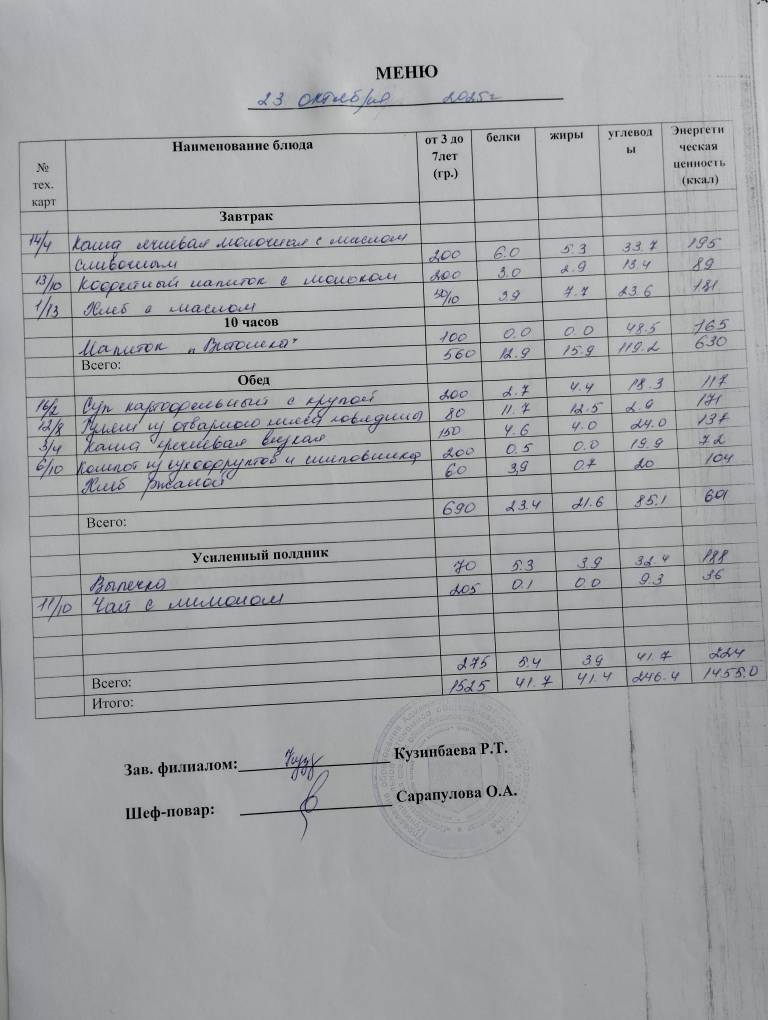 МЕНЮ
23 октября 2025г
№ тех. карт Наименование блюда от 3 до 7лет (гр.) белки жиры углеводы Энергетическая ценность (ккал)
Завтрак
14/4 Каша ячневая молочная с маслом
сливочным 200 6.0 5.3 33.7 195
13/10 Кофейный напиток с молоком 200 3.0 2.9 13.4 89
1/13 Хлеб с маслом 50/10 3.9 7.7 23.6 181
10 часов
Напиток "Витошка" 100 0.0 0.0 48.5 165
Всего: 560 12.9 15.9 119.2 630
Обед
16/2 Суп картофельный с крупой 200 2.7 4.4 18.3 117
12/8 из отварного мяса говядины 80 11.7 12.5 2.9 171
3/4 Каша гречневая вязкая 150 4.6 4.0 24.0 137
6/10 Компот из сухофруктов и шиповника 200 0.5 0.0 19.9 72
Хлеб ржаной 60 3,9 0.7 20 104
Всего: 690 23.4 21.6 85.1 601
Усиленный полдник
Выпечка 70 5.3 3.9 32.4 188
11/10 Чай с лимоном 205 0.1 0.0 9.3 36
Всего: 275 5.4 3.9 41.7 224
Итого: 1525 41.7 41.4 246.4 1455.0
Зав. филиалом: Кузинбаева Р.Т.
Шеф-повар: Сарапулова О.А.